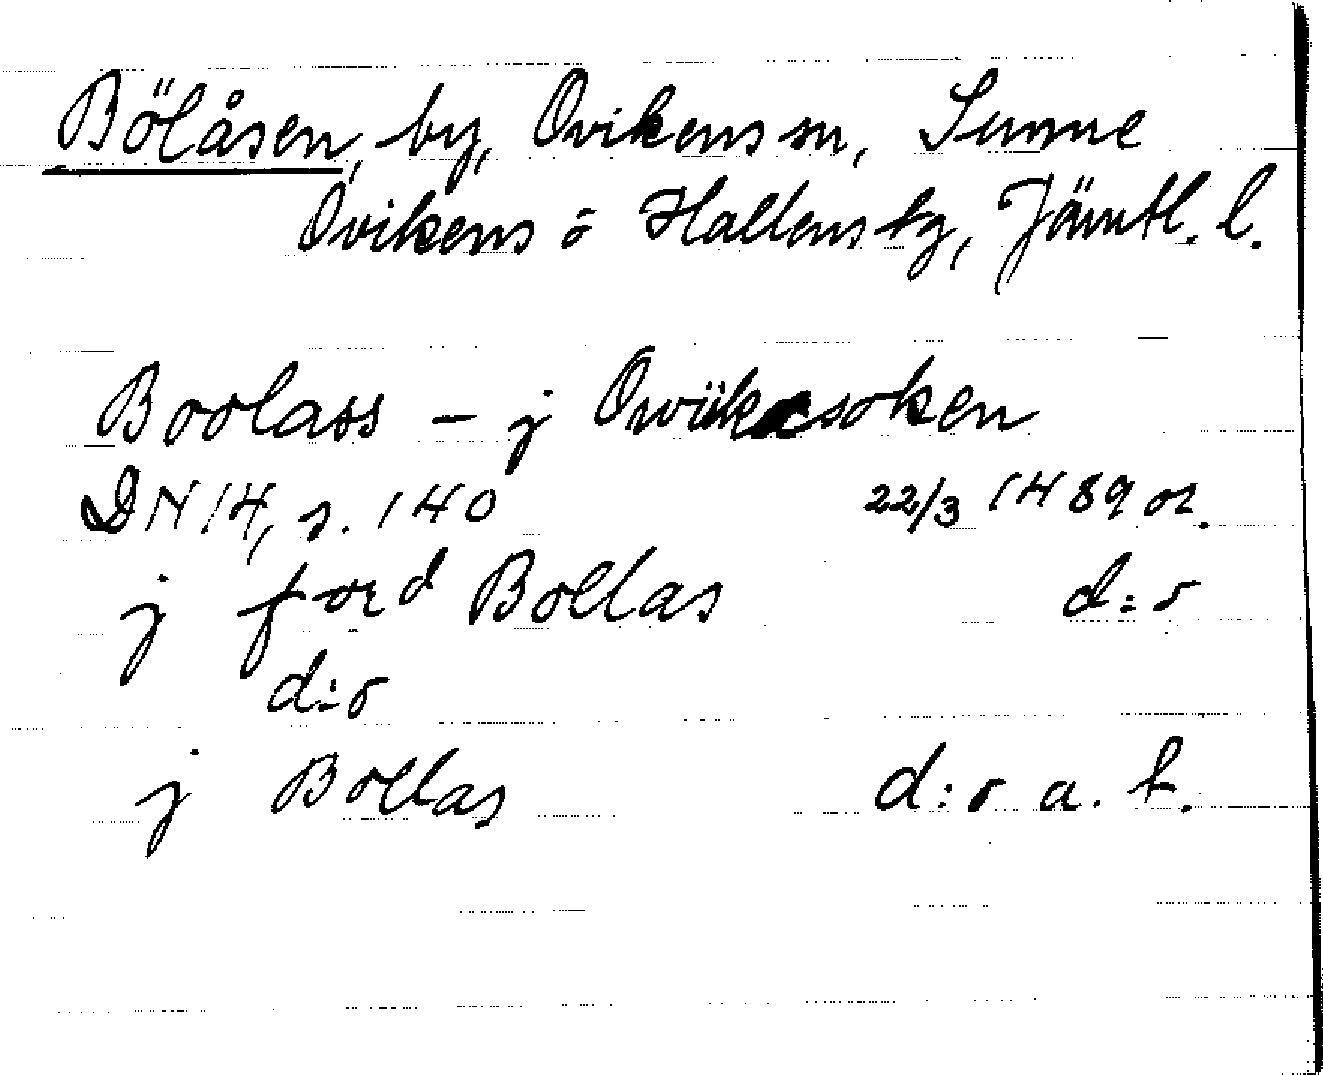 Bölåsen, by, Ovikens sn, Sunne
Ovikens o Hallens tg, Jämtl. l.
Boolass – j Owiikasoken
DN 14, s. 140 22/3 1489 or.
j ford Bollas d:o
d:o
j Bollas d:o a. t.